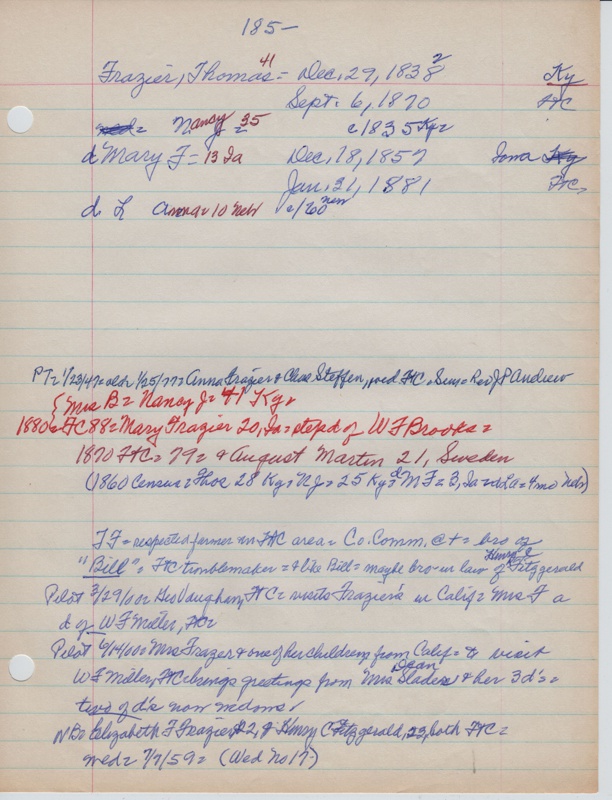 185-
Frazier, Thomas 41 = Dec. 29, 1838 2 Ky
Sept. 6, 1870 FtC
Nancy J = 35 c1835 Ky=
d Mary F = 13 Ia Dec. 18, 1857 Iowa Ky
Jan. 31, 1881 FtC,
d. L Anna = 10 Neb c/60 neb
PT = 1/23/47 = 1/25/77 = Anna Frazier & Chas Steffen, wed FtC = Rev J P Andrew
{Mrs B = Nancy J = 41 Ky=
1880 = FC 88 = Mary Frazier 20, Ia = stepd of W F Brooks =
1870 FtC = 79 = & August Martin 21, Sweden
(1860 Census = Thos 28 Ky = NJ = 25 Ky = d MF = 3, Ia = d LA = 4mo Neb)
TF = respected farmer in FtC area = Co. Comm. @ t = bro of
"Bill" = FtC troublemaker = & like Bill = maybe bro-in law of Henry C Fitzgerald
Pilot 3/29/00 Geo Vaughan, FtC = visits Frazier's in Calif = Mrs F a
d of W F Miller, FtC
Pilot 6/14/00 = Mrs Frazier & one of her children from Calif = to visit
W F Miller, FtC brings greetings from Mrs Dean Slader & her 3 d's =
two of d's now
NB = Elizabeth F Frazier 22, & Henry C Fitzgerald, 23, both FtC =
wed = 7/7/59 = (Wed No 17)